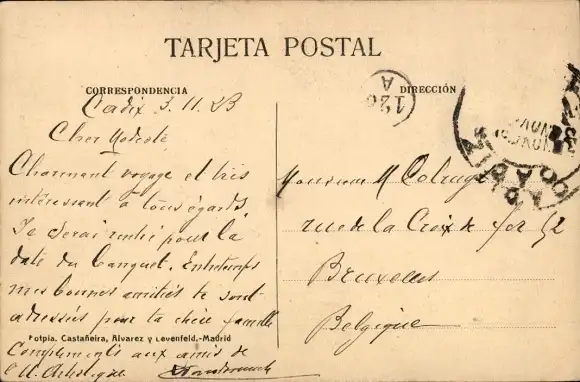 TARJETA POSTAL
CORRESPONDENCIA
DIRECCIÓN
126
A
Cadix 3.11.23
Cher Modeste
Charmant voyage et très
intéressant à tous égards.
Je serai rentré pour la
date du banquet. Entretemps
mes bonnes amitiés te sont
adressées pour ta chère famille
Compliments aux amis de
Monsieur M
rue de la Croix de fer 52
Bruxelles
Belgique
Fotpia. Castañeira, Alvarez y Levenfeld.-Madrid